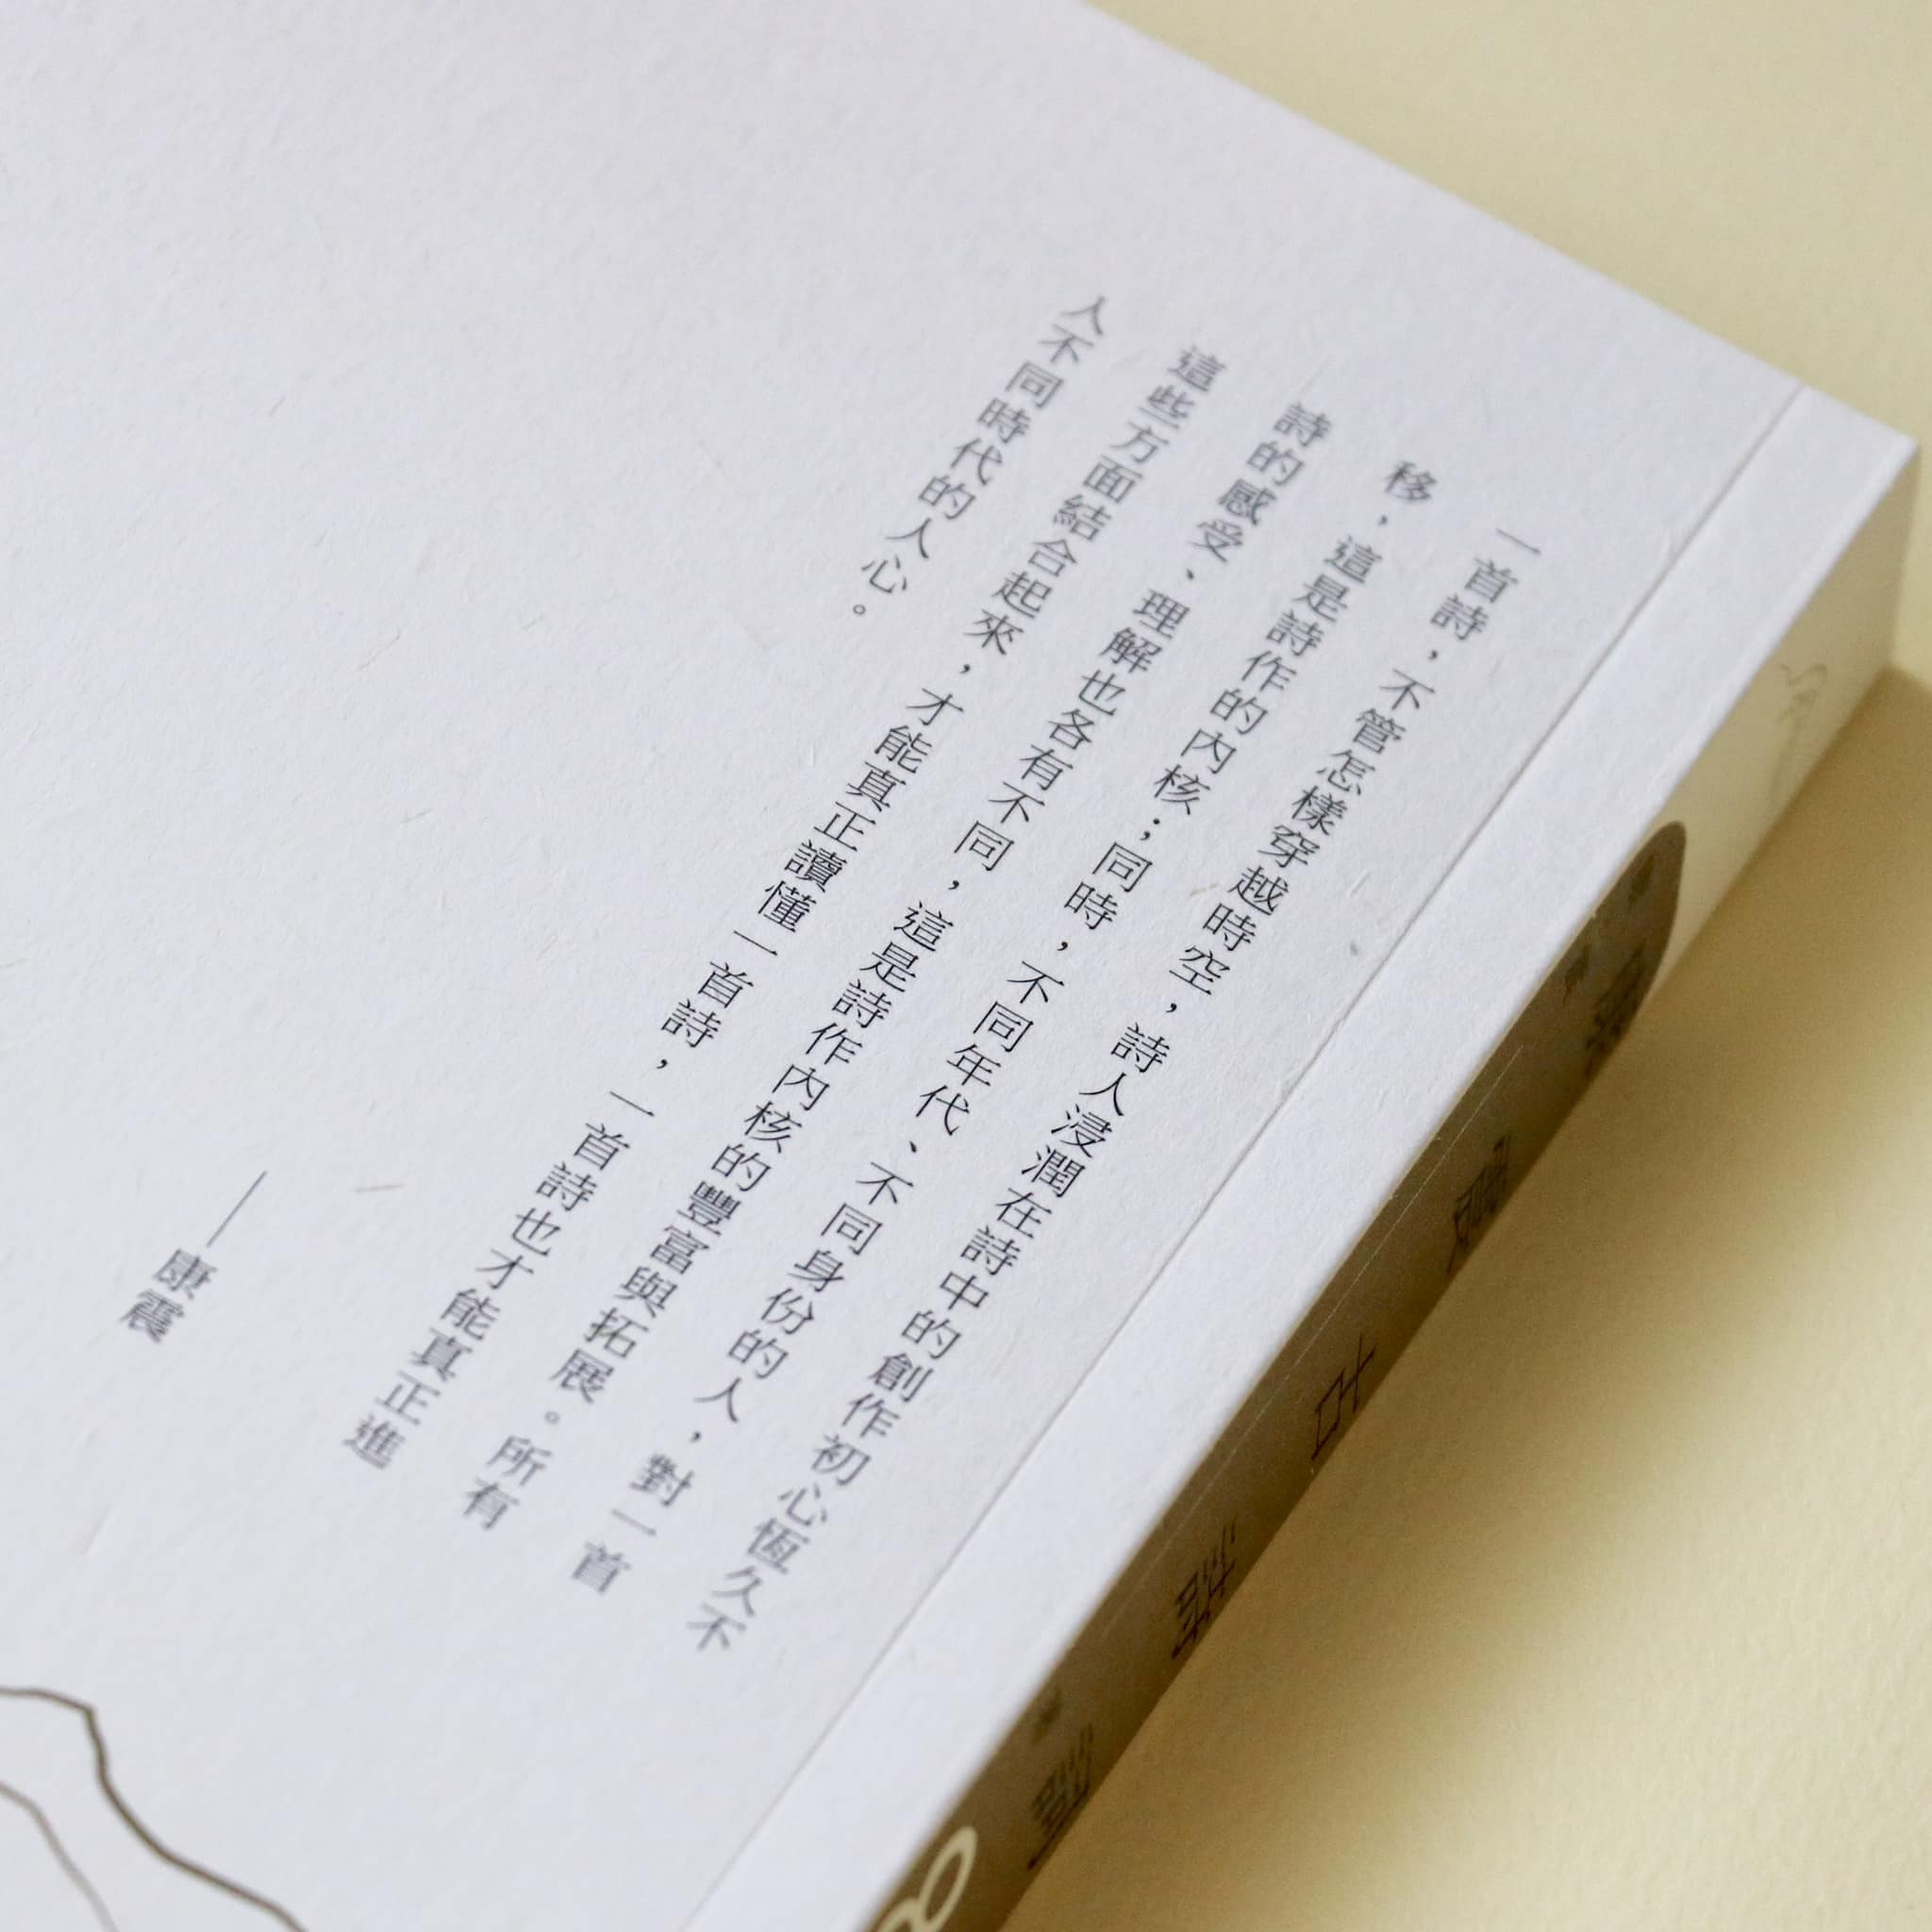 一首詩，不管怎樣穿越時空，詩人浸潤在詩中的創作初心恆久不
移，這是詩作的內核；同時，不同年代、不同身份的人，對一首
詩的感受、理解也各有不同，這是詩作內核的豐富與拓展。所有
這些方面結合起來，才能真正讀懂一首詩，一首詩也才能真正進
人不同時代的人心。
——康震